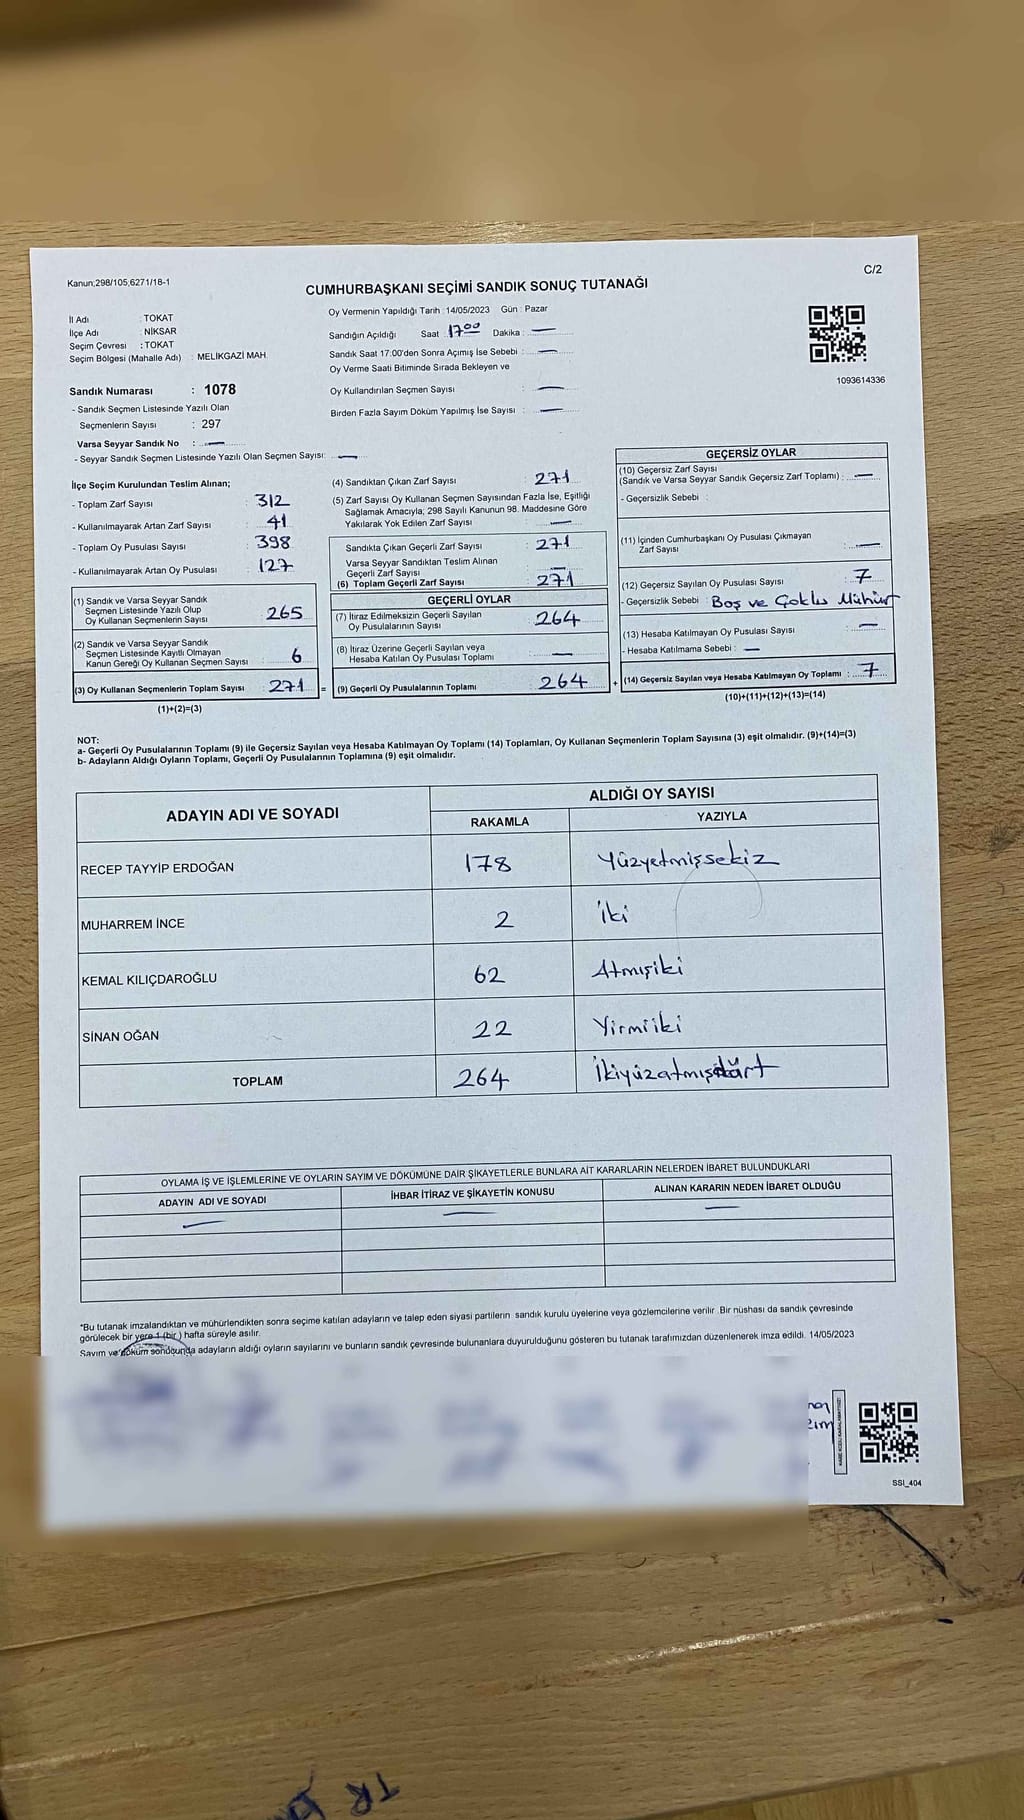 Kanun;298/105,6271/18-1
C/2
CUMHURBAŞKANI SEÇİMİ SANDIK SONUÇ TUTANAĞI
İl Adı : TOKAT
İlçe Adı : NİKSAR
Seçim Çevresi : TOKAT
Seçim Bölgesi (Mahalle Adı) : MELİKGAZİ MAH.
Sandık Numarası : 1078
- Sandık Seçmen Listesinde Yazılı Olan
Seçmenlerin Sayısı : 297
Varsa Seyyar Sandık No : —
- Seyyar Sandık Seçmen Listesinde Yazılı Olan Seçmen Sayısı: —
Oy Vermenin Yapıldığı Tarih : 14/05/2023 Gün : Pazar
Sandığın Açıldığı Saat : 17⁰⁰ Dakika : —
Sandık Saat 17:00'den Sonra Açımış İse Sebebi : —
Oy Verme Saati Bitiminde Sırada Bekleyen ve
Oy Kullandırılan Seçmen Sayısı : —
Birden Fazla Sayım Döküm Yapılmış İse Sayısı : —
1093614336
İlçe Seçim Kurulundan Teslim Alınan;
- Toplam Zarf Sayısı : 312
- Kullanılmayarak Artan Zarf Sayısı : 41
- Toplam Oy Pusulası Sayısı : 398
- Kullanılmayarak Artan Oy Pusulası : 127
(1) Sandık ve Varsa Seyyar Sandık
Seçmen Listesinde Yazılı Olup
Oy Kullanan Seçmenlerin Sayısı : 265
(2) Sandık ve Varsa Seyyar Sandık
Seçmen Listesinde Kayıtlı Olmayan
Kanun Gereği Oy Kullanan Seçmen Sayısı : 6
(3) Oy Kullanan Seçmenlerin Toplam Sayısı : 271 =
(1)+(2)=(3)
(4) Sandıktan Çıkan Zarf Sayısı : 271
(5) Zarf Sayısı Oy Kullanan Seçmen Sayısından Fazla İse, Eşitliği
Sağlamak Amacıyla; 298 Sayılı Kanunun 98. Maddesine Göre
Yakılarak Yok Edilen Zarf Sayısı : —
Sandıkta Çıkan Geçerli Zarf Sayısı : 271
Varsa Seyyar Sandıktan Teslim Alınan
Geçerli Zarf Sayısı : —
(6) Toplam Geçerli Zarf Sayısı : 271
GEÇERLİ OYLAR
(7) İtiraz Edilmeksizin Geçerli Sayılan
Oy Pusulalarının Sayısı : 264
(8) İtiraz Üzerine Geçerli Sayılan veya
Hesaba Katılan Oy Pusulası Toplamı : —
(9) Geçerli Oy Pusulalarının Toplamı : 264 +
GEÇERSİZ OYLAR
(10) Geçersiz Zarf Sayısı
(Sandık ve Varsa Seyyar Sandık Geçersiz Zarf Toplamı) : —
- Geçersizlik Sebebi :
(11) İçinden Cumhurbaşkanı Oy Pusulası Çıkmayan
Zarf Sayısı : —
(12) Geçersiz Sayılan Oy Pusulası Sayısı : 7
- Geçersizlik Sebebi : Boş ve Çoklu Mühür
(13) Hesaba Katılmayan Oy Pusulası Sayısı : —
- Hesaba Katılmama Sebebi : —
(14) Geçersiz Sayılan veya Hesaba Katılmayan Oy Toplamı : 7
(10)+(11)+(12)+(13)=(14)
NOT:
a- Geçerli Oy Pusulalarının Toplamı (9) ile Geçersiz Sayılan veya Hesaba Katılmayan Oy Toplamı (14) Toplamları, Oy Kullanan Seçmenlerin Toplam Sayısına (3) eşit olmalıdır. (9)+(14)=(3)
b- Adayların Aldığı Oyların Toplamı, Geçerli Oy Pusulalarının Toplamına (9) eşit olmalıdır.
ADAYIN ADI VE SOYADI
ALDIĞI OY SAYISI
RAKAMLA YAZIYLA
RECEP TAYYİP ERDOĞAN 178 Yüzyetmişsekiz
MUHARREM İNCE 2 İki
KEMAL KILIÇDAROĞLU 62 Atmışiki
SİNAN OĞAN 22 Yirmiiki
TOPLAM 264 İkiyüzatmışdört
OYLAMA İŞ VE İŞLEMLERİNE VE OYLARIN SAYIM VE DÖKÜMÜNE DAİR ŞİKAYETLERLE BUNLARA AİT KARARLARIN NELERDEN İBARET BULUNDUKLARI
ADAYIN ADI VE SOYADI İHBAR İTİRAZ VE ŞİKAYETİN KONUSU ALINAN KARARIN NEDEN İBARET OLDUĞU
— — —
*Bu tutanak imzalandıktan ve mühürlendikten sonra seçime katılan adayların ve talep eden siyasi partilerin sandık kurulu üyelerine veya gözlemcilerine verilir. Bir nüshası da sandık çevresinde
görülecek bir yere 1 (bir) hafta süreyle asılır.
Sayım ve döküm sonucunda adayların aldığı oyların sayılarını ve bunların sandık çevresinde bulunanlara duyurulduğunu gösteren bu tutanak tarafımızdan düzenlenerek imza edildi. 14/05/2023
SSI_404
TR